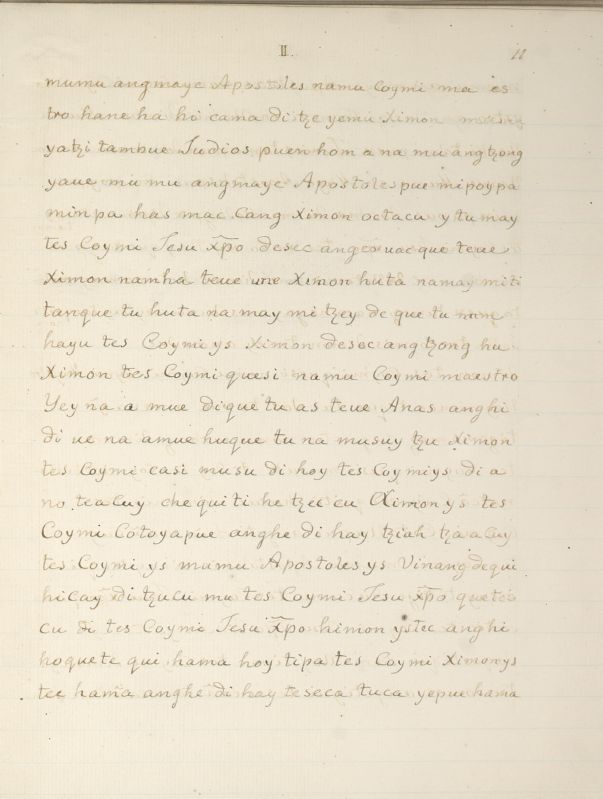 II. 11
mumu angmaye Apostoles namu Coymi ma es
tro hane ha hi cama di tze yemu Ximon
yatzi tambue Judios puen hom a na mu angtzong
yaue mu mu angmaye Apostoles pue mipoypa
minpa has mac Cang Ximon octacu y tu may
tes Coymi Jesu Xp̃o desec angexuae que teue
Ximon namha teue une Ximon huta namay miti
tanque tu huta na may mi tzey de que tu
hayu tes Coymi ys Ximon desec ang tzong hu
Ximon tes Coymi quesi namu Coymi maestro
Yey na a mue dique tu as teue Anas anghi
di ue na amue huque tu na musuy tzu Ximon
tes Coymi casi musu di hoy tes Coymiys di a
no teacuy che quiti he tzec cu Ximon ys tes
Coymi Cotoyapue anghe di hay tziah tza a cuy
tes Coymi ys mumu Apostoles ys Vinang dequi
hicay di tzucu mu tes Coymi Jesu Xp̃o quetec
cu di tes Coymi Jesu Xp̃o himon ystec anghi
hoquete qui hama hoy tipa tes Coymi Ximonys
tec hama anghe di hay teseca tuca yepue hama